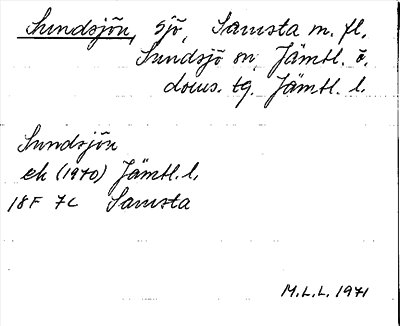 Sundsjön, sjö, Samsta m. fl.
Sundsjö sn, Jämtl. ö.
doms. tg. Jämtl. l.
Sundsjön
ek (1970) Jämtl. l.
18F 7c Samsta
M.L.L. 1971